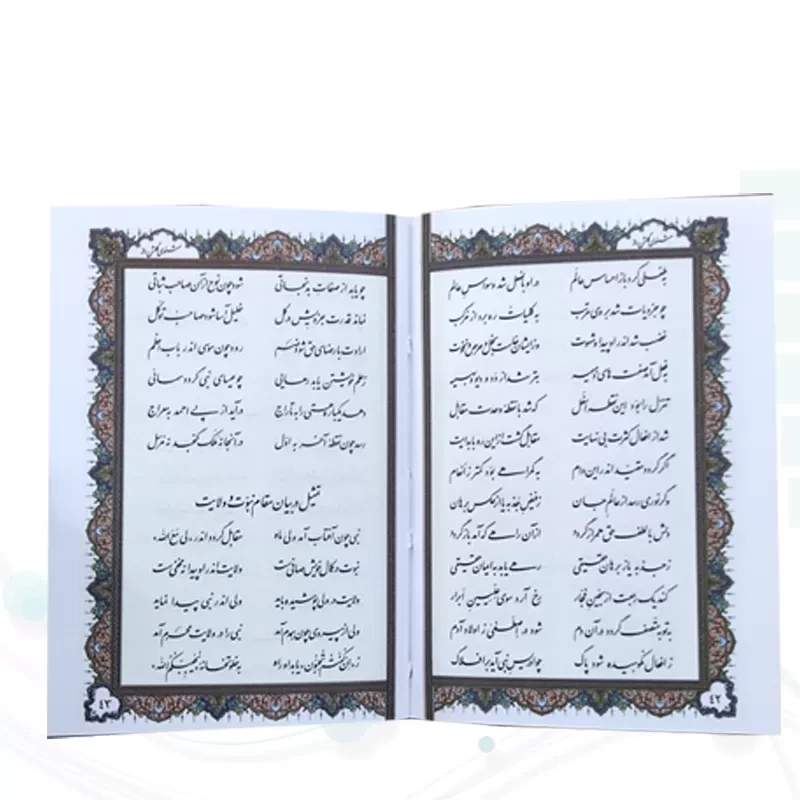 مثنوی گلشن راز
بطفلی کرد باز احساس عالم در او بالفعل شد وسواس عالم
چو جزویات شد بر وی مرتب به کلیات ره برد از مرکب
غضب شد اندر او پیدا و شهوت وز ایشان خاست بخل و حرص و نخوت
بفعل آمد صفت های ذمیمه بتر شد از دد و دیو و بهیمه
تنزل را بود این نقطه اسفل که شد با نقطه وحدت مقابل
شد از افعال کثرت بی نهایت مقابل گشت از این رو با بدایت
اگر گردد مقید اندر این دام به گمراهی بود کمتر ز انعام
وگر نوری رسد از عالم جان ز فیض جذبه یا از عکس برهان
دلش با لطف حق همراز گردد از آن راهی که آمد باز گردد
ز جذبه یا ز برهان حقیقی رهی یابد به ایمان حقیقی
کند یک رجعت از سجین فجار رخ آرد سوی علیین ابرار
به توبه متصف گردد در آن دم شود در اصطفی ز اولاد آدم
ز افعال نکوهیده شود پاک چو ادریس نبی آید بر افلاک
۴۲
مثنوی گلشن راز
چو یابد از صفات بد نجاتی شود چون نوح از آن صاحب ثباتی
نماند قدرت جزویش در کل خلیل آسا شود صاحب توکل
ارادت با رضای حق شود ضم رود چون موسی اندر باب اعظم
ز علم خویشتن یابد رهایی چو عیسای نبی گردد سمائی
دهد یکباره هستی را به تاراج درآید از پی احمد به معراج
رسد چون نقطه آخر به اول در آنجا نه ملک گنجد نه مرسل
تمثیل در بیان مقام نبوت و ولایت
نبی چون آفتاب آمد ولی ماه مقابل گردد اندر «لی مع الله»
نبوت در کمال خویش صافی است ولایت اندر او پیدا نه مخفی است
ولایت در ولی پوشیده باید ولی اندر نبی پیدا نماید
ولی از پیروی چون همدم آمد نبی را در ولایت محرم آمد
ز «ان کنتم تحبون» یابد او راه به خلوتخانه «یحببکم الله»
۴۳